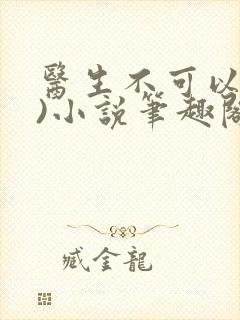 醫生不可以
)小說筆趣閣
臧金龍